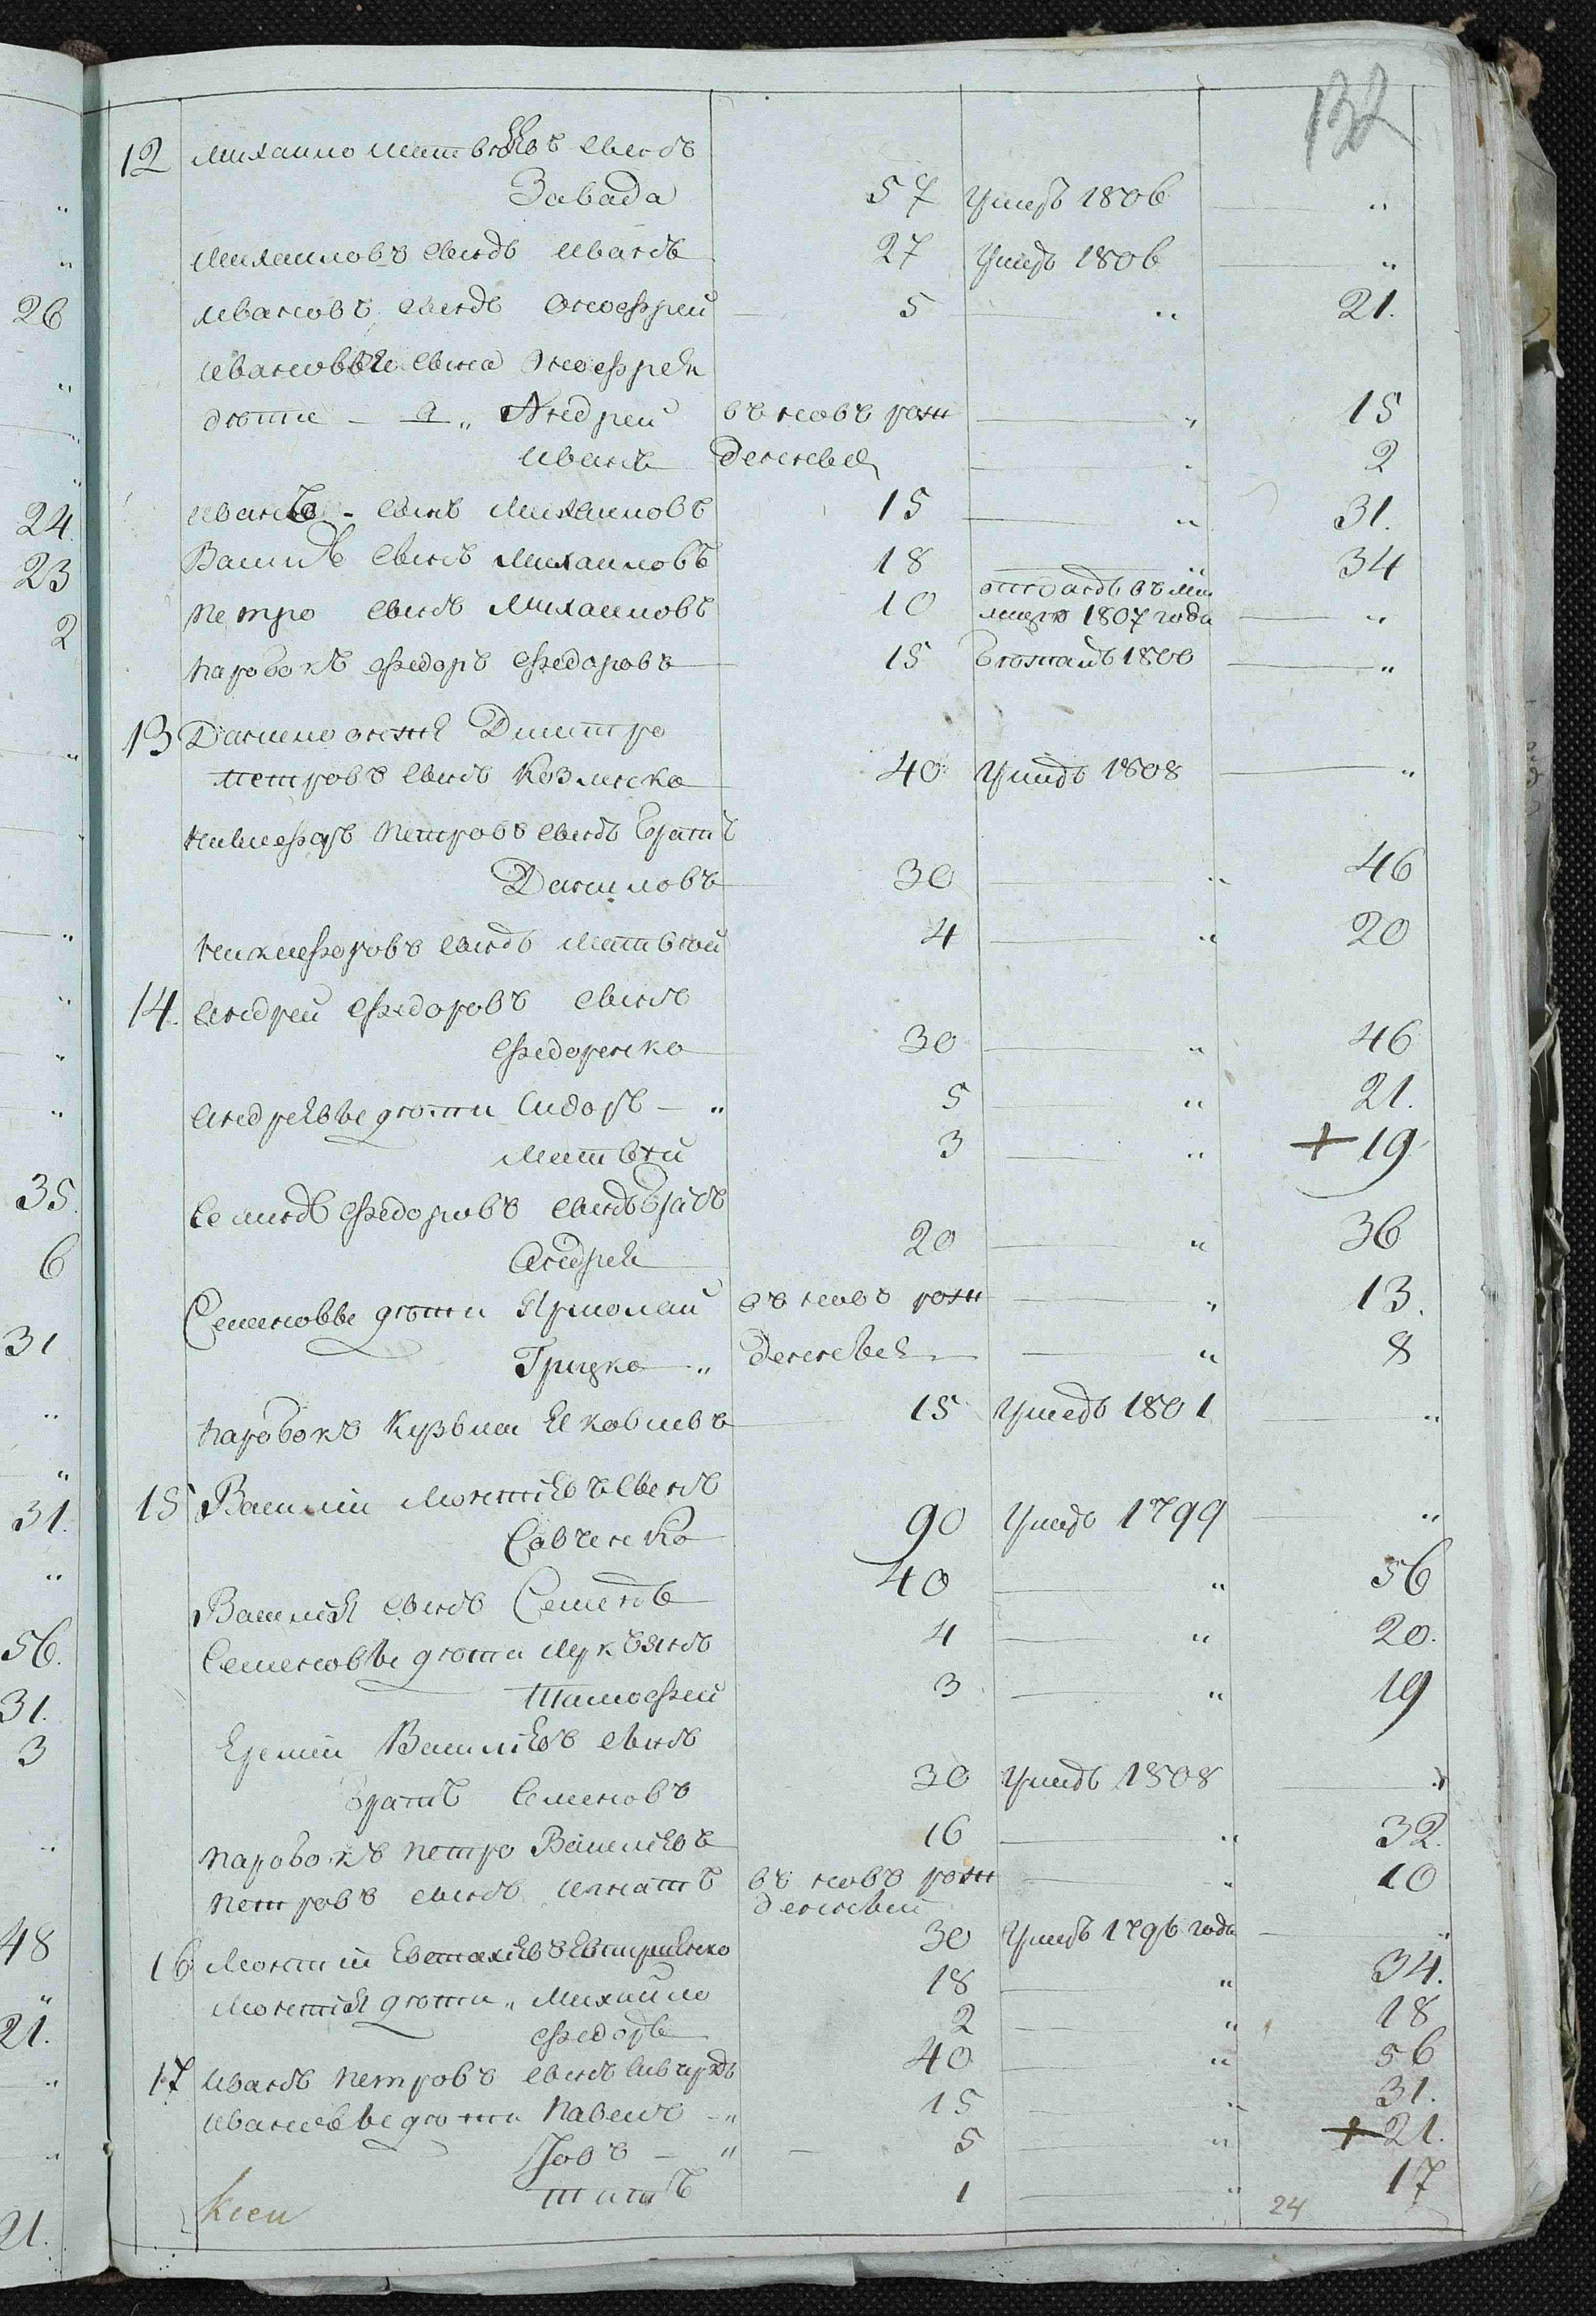 132
12 Михаило Матвѣевъ сынъ
Завада 57 Умеръ 1806 "
Михаиловъ сынъ Иванъ 27 Умеръ 1806 "
Ивановъ сынъ Оноефрей 5 " 21.
Ивановыя сына Оноефрея
дѣти — Андрей въ новъ рож " 15
Иванъ денныя " 2
Иванъ - сынъ Михаиловъ 15 " 31.
Василь сынъ Михаиловъ 18 " 34
отданъ въ ми
Петро сынъ Михаиловъ 10 лицю 1807 года "
паробокъ Федоръ Федоровъ 15 бѣжалъ 1800 "
13 Данило онжя Дмитро
Петровъ сынъ Козленко 40 Умеръ 1808 "
Никиефоръ Петровъ сынъ братъ
Даниловъ 30 " 46
Никиефоровъ сынъ Матвѣй 4 " 20
14. Андрей Федоровъ сынъ
Федоренко 30 " 46
Андреевые дѣти Сидоръ — " 5 " 21.
Матвѣй 3 " + 19
Семенъ Федоровъ сынъ братъ
Андрея 20 " 36
Семеновые дѣти Ярмолай въ новъ рож " 13.
Грицко " денныя " 8
паробокъ Кузьма Яковлевъ 15 Умеръ 1801 "
15 Василій Монтіевъ сынъ
Савченко 90 Умеръ 1799 "
Василія сынъ Семенъ 40 " 56
Семеновые дѣти Лукьянъ 4 " 20.
Тимоефей 3 " 19
Еремій Василіевъ сынъ
братъ Семеновъ 30 Умеръ 1808 "
паробокъ Петро Василіевъ 16 " 32.
Петровъ сынъ Игнатъ въ новъ рож " 10
денный
16 Монтій Евтахіевъ 30 Умеръ 1796 года "
Монтія дѣти " Михаило 18 " 34.
Федоръ 2 " 18
17 Иванъ Петровъ сынъ 40 " 56
Ивановые дѣти Павелъ — " 15 " 31.
Іовъ — " 5 " + 21.
Титъ 1 " 17
24
26
24.
23
2
35.
6
31
31.
56.
31.
3
48
21.
21.